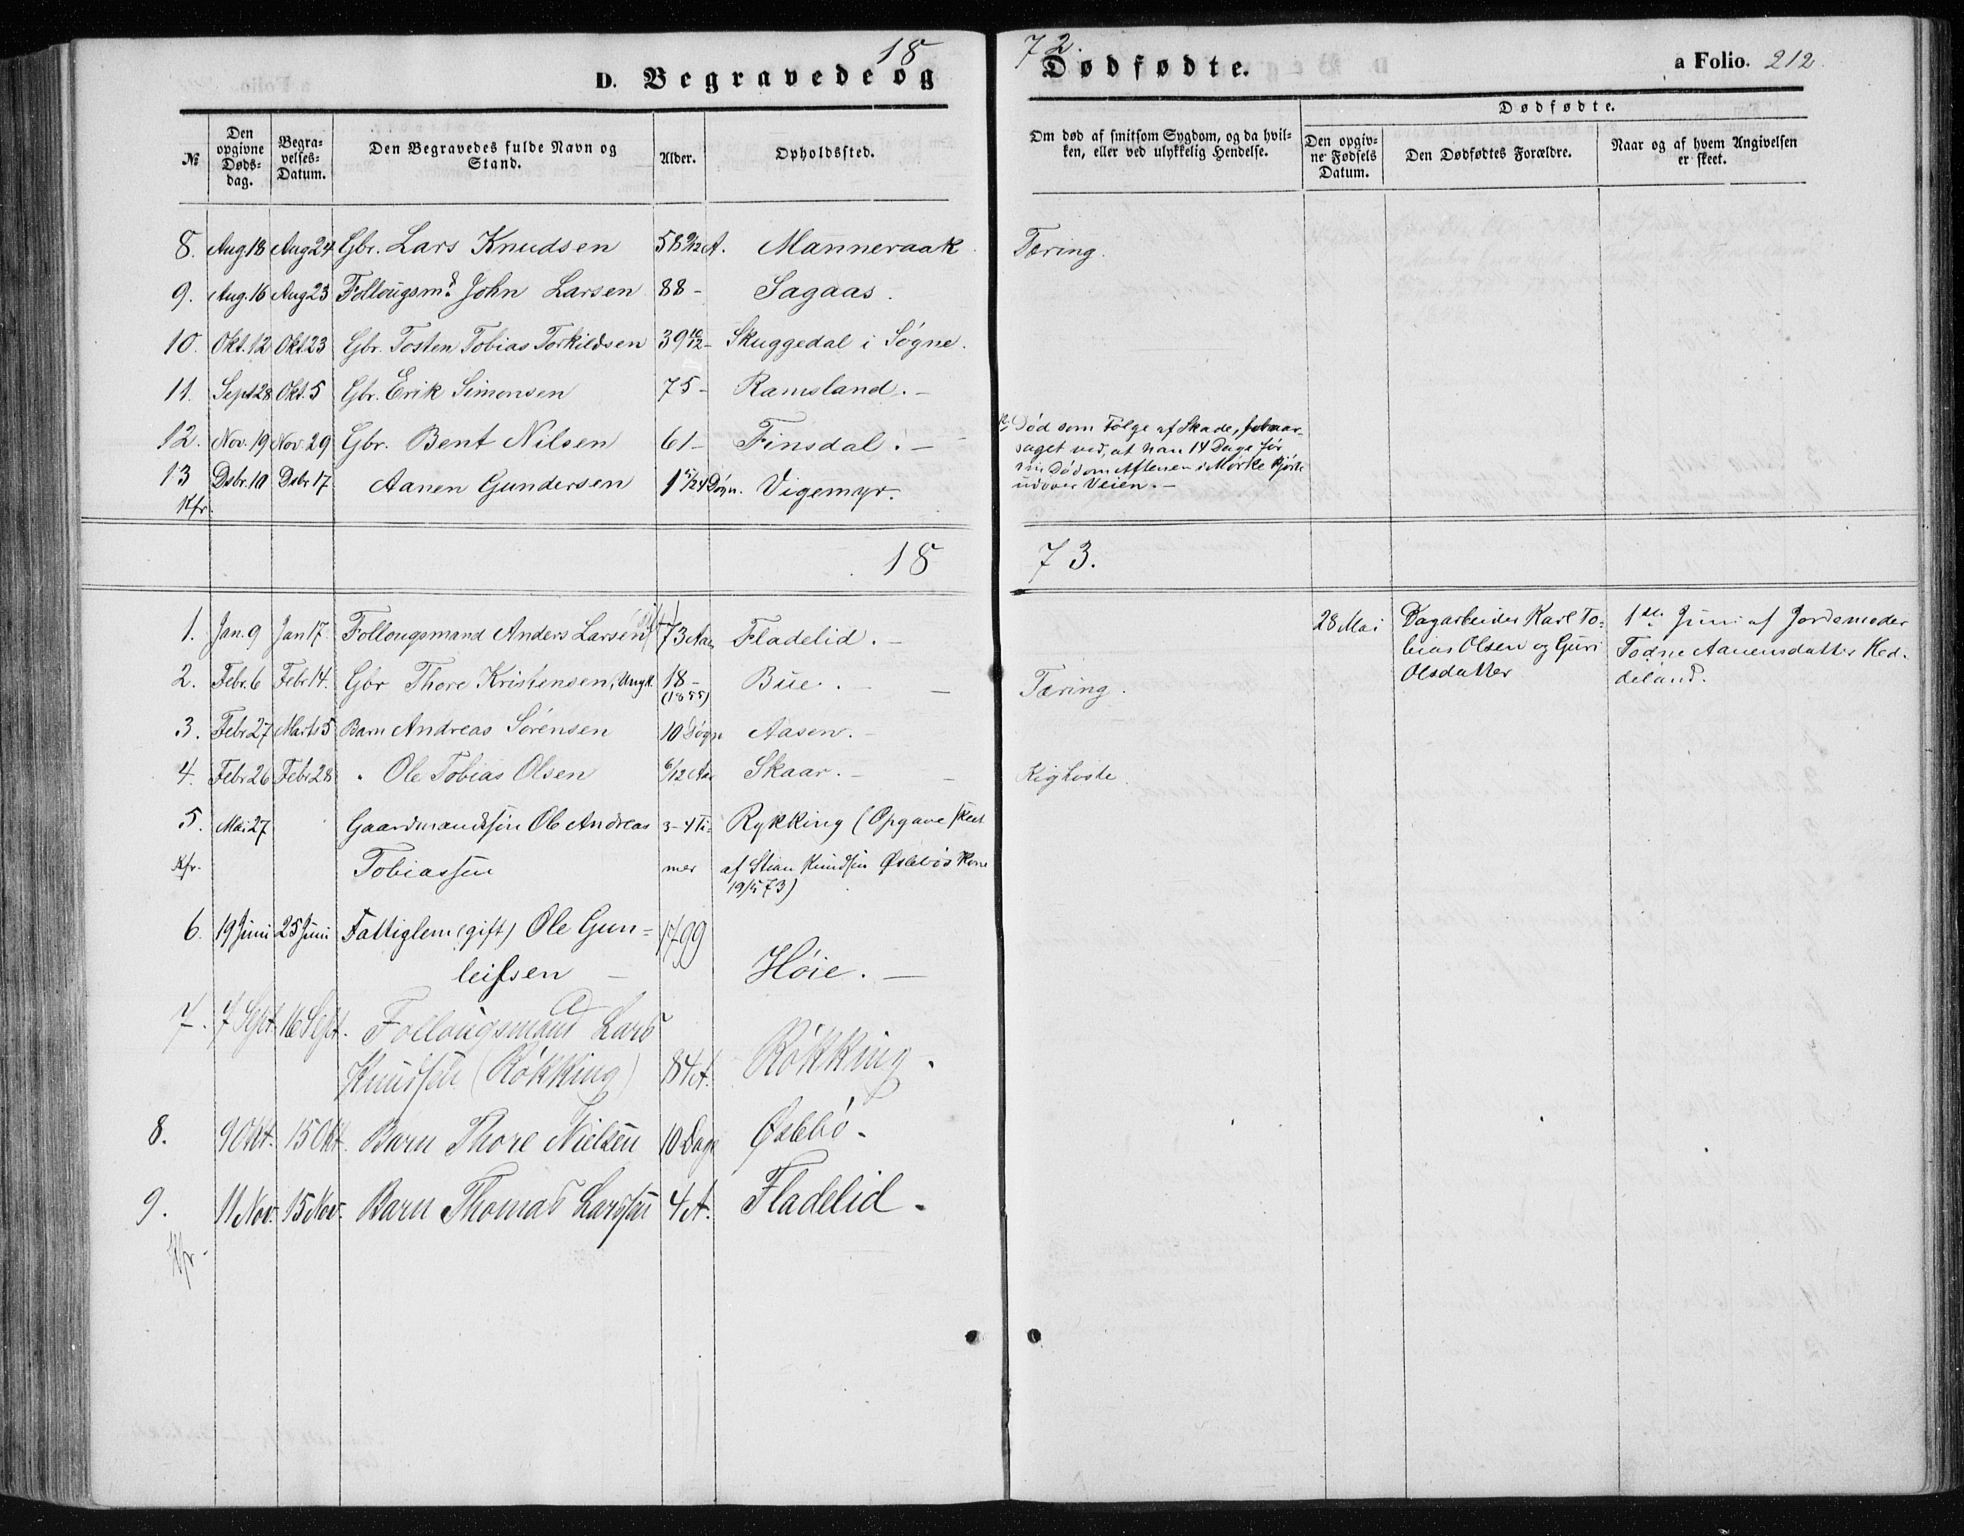 18 72.
D. Begravede og Dødfødte. a Folio. 212.
№ Den opgivne Døds-dag. Begra-velses-Datum. Den Begravedes fulde Navn og Stand. Alder. Opholdssted. Om død af smitsom Sygdom, og da hvil-ken, eller ved ulykkelig Hendelse. Dødfødte. Den opgiv-ne Fødsels Datum. Den Dødfødtes Forældre. Naar og af hvem Angivelsen er skeet.
8. Aug 18 Aug 24 Gbr. Lars Knudsen 58 9/12 A. Manneraak Tæring.
9. Aug. 16 Aug 23 Follougsmd John Larsen 88 - Sagaas.
10. Okt. 12 Okt 23 Gbr. Tosten Tobias Torkildsen 39 10/12 - Skuggedal i Søgne.
11. Sept 28 Okt. 5 Gbr. Erik Simonsen 75 - Ramsland. -
12. Nov. 19 Nov 29 Gbr. Bent Nilsen 61 - Finsdal. -
Død som Følge af Skade, foraar-
saget ved, at han 14 Dage før
sin Død om Aftenen i Mørke kjørte
udover Veien. -
13 Dsbr. 10 Dsbr 17 Aanen Gundersen 1 5/24 Døgn. Vigemyr.
Kfr.
18 73.
1. Jan. 9 Jan 17 Follougsmand Anders Larsen 73 Aar Fladelid. -
28 Mai Dagarbeider Karl To-
bias Olsen og Guri
Olsdatter
1ste Juni af Jordemoder
Todne Aanensdatter Hed-
deland.
2. Febr. 6 Febr 14. Gbr Thore Kristensen, Ungk. 18 - (1855) Bue. - Tæring.
3. Febr 27 Marts 5 Barn Andreas Sørensen 10 Døgn Aasen. -
4. Febr 26 Febr 28 " Ole Tobias Olsen 6/12 Aar Skaar. - Kighoste
5. Mai 27 Gaardmandssøn Ole Andreas 3-4 Ti- Rykking (Opgave skeet
Kfr. Tobiassen mer af Stian Knudsen Øslebøs Kone
19/5 73)
6. 19 Juni 25 Juni Fattiglem (gift) Ole Gun- 1799
leifsen - Høie. -
7. 7 Sept. 16 Sept. Follougsmand Lars
Knudsen (Røkking) 84 A. Røkking.
8. 9 Okt. 15 Okt. Barn Thore Nielsen 10 Dage Øslebø.
9. 11 Nov. 15 Nov. Barn Thomas Larssen 4 A. Fladelid.
Kfr.